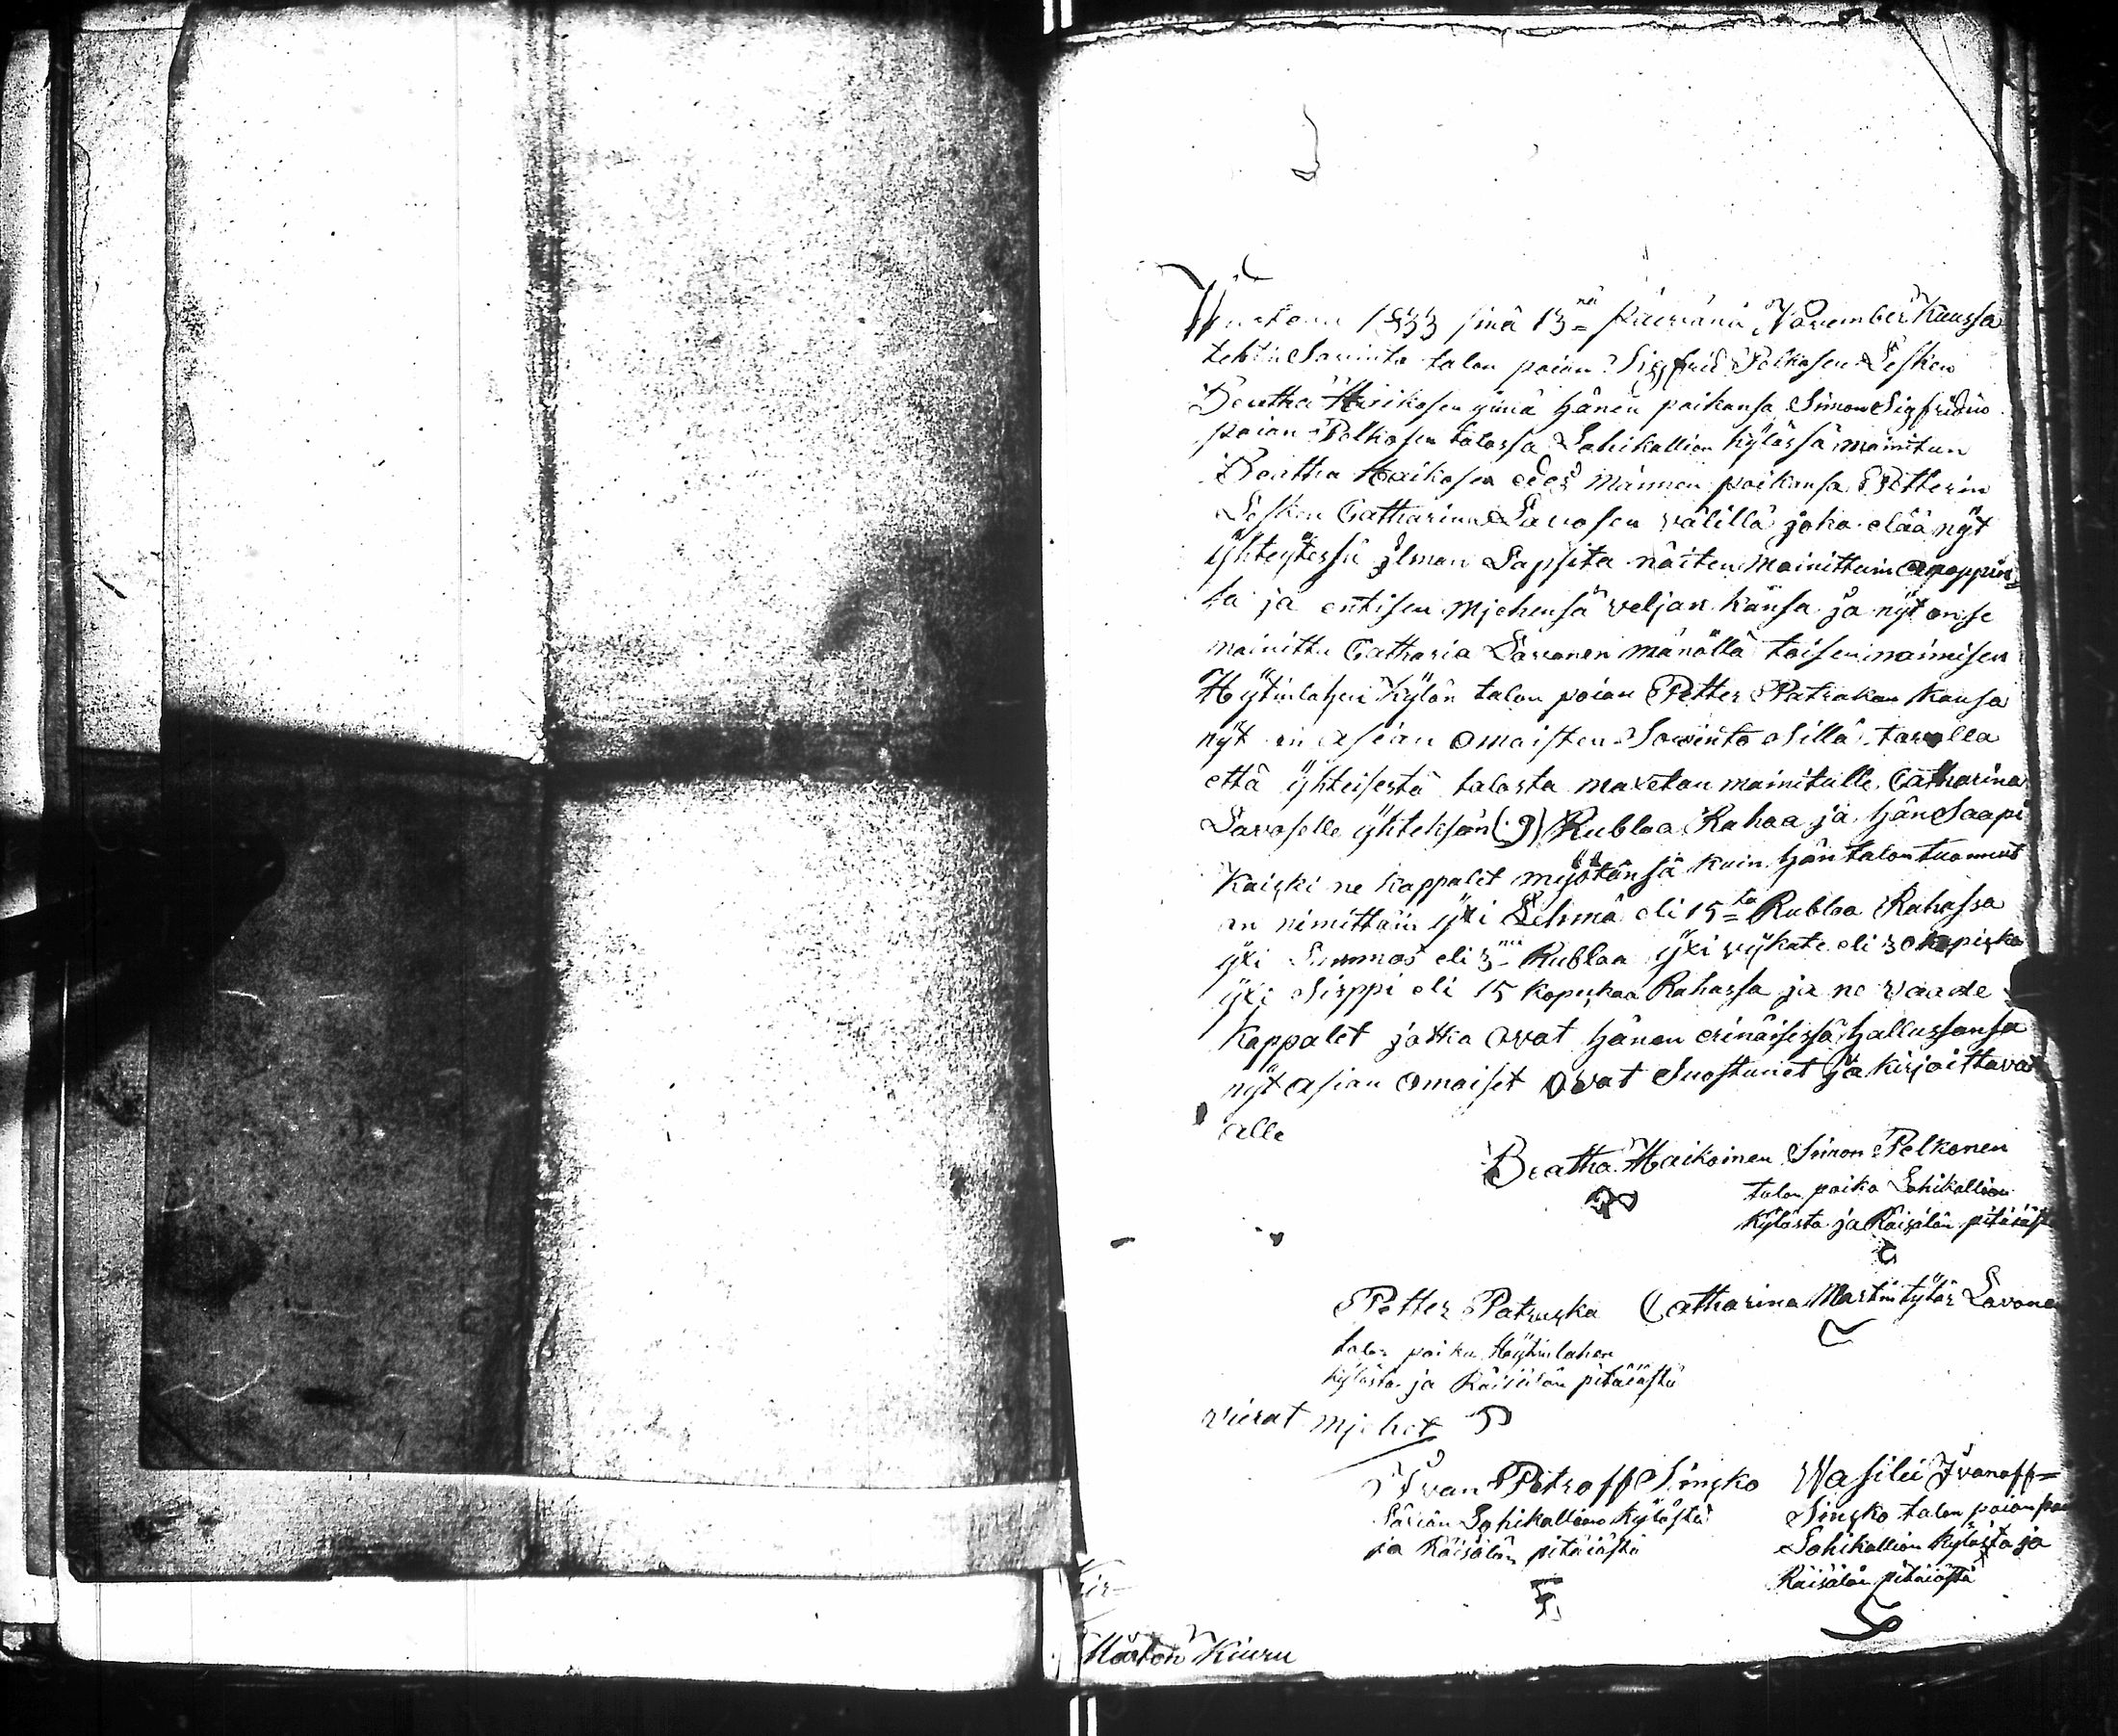 Wuotena 1833 sinä 13 nä päivänä November Kuussa
tehtin Sovinto talon poian Sigfrid Pelkosen Lesken
Beatha Haikosen ynnä hänen poikansa Simon Sigfridin
poian Pelkosen talossa Lohikallion kylässä mainitun
Beatha Haikosen edes männen poikansa Petterin
Lesken Catharina Lavosen välillä joka elää nyt
yhteytessä ilman Lapsita näiten mainittuin anoppin=
sa ja entisen mjehensä veljan kansa ja nyt on se
mainittu Catharia Lavonen mänöllä toisen naimisen
Höytinlahen kylän talon poian Petter Patrakan kansa
nyt on asian omaisten Sovinto sillä tavalla
että yhteisestä talosta maxetan mainitulle Catharina
Lavoselle yhteksän (9) Rublaa Rahaa ja hän Saapi
Kaiski ne kappalet myötänsä kuin hän talon tuonnut
on nimittäin yxi Lehmä eli 15 ta Rublaa Rahassa
yxi Lammas eli 3 me Rublaa yxi vijkate eli 30 kopiska
yxi Sirppi eli 15 kopeskaa Rahassa ja ne vaate
Kappalet jotka ovat hänen erinäisessä hallussansa
nyt asian omaiset ovat Suostunet ja kirjoittavat
alle
Beatha Haikoinen Simon Pelkonen
talon poika Lohikallion
Kylästa ja Räisälän pitäiäst
Petter Patruska Catharina Martin tytär Lavone
talon poika Höytinlahen
kylästa ja Räisälän pitäiästä
vierat mjehet
Ivan Petroff Singko Wasilei Ivanoff=
Lohikallion Kylästä Singko talon poian
ja Räisälän pitäiästä Lohikallion kylästä ja
Räisälän pitäiästä
Mårton Kiuru